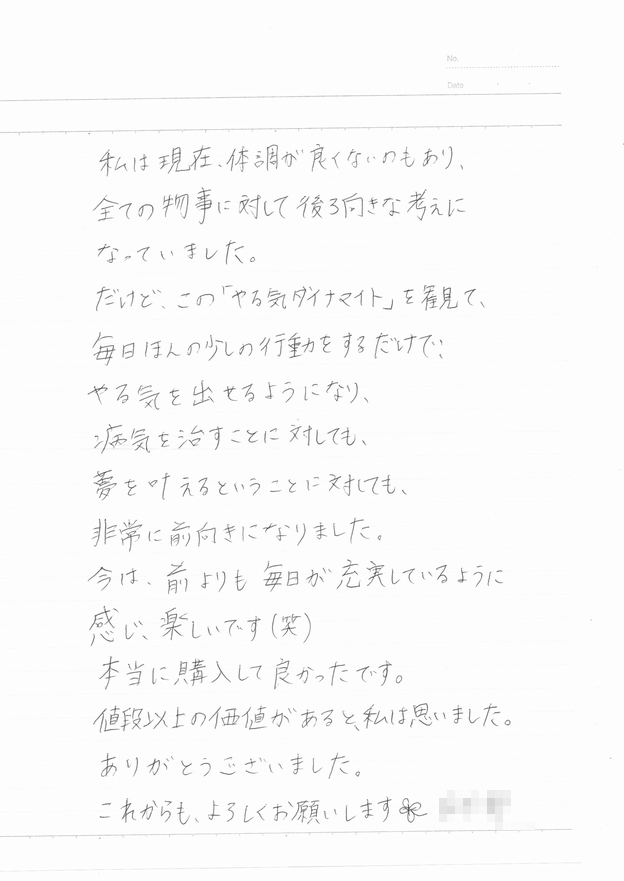 No.
Date
私は現在、体調が良くないのもあり、
全ての物事に対して後ろ向きな考えに
なっていました。
だけど、この「やる気ダイナマイト」を観て、
毎日ほんの少しの行動をするだけで、
やる気を出せるようになり、
病気を治すことに対しても、
夢を叶えるということに対しても、
非常に前向きになりました。
今は、前よりも毎日が充実しているように
感じ、楽しいです(笑)
本当に購入して良かったです。
値段以上の価値があると、私は思いました。
ありがとうございました。
これからも、よろしくお願いします